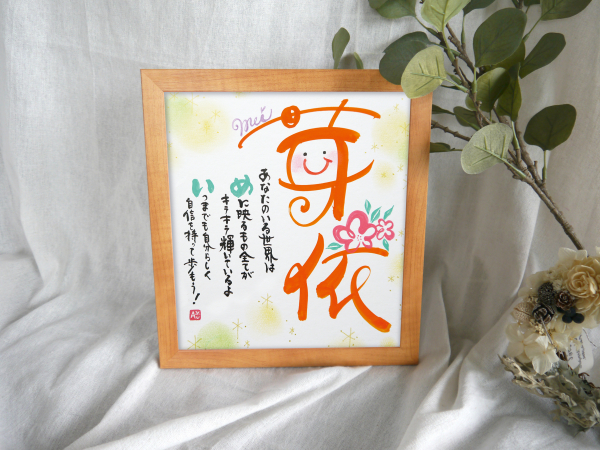 芽依
mei
あなたのいる世界は
めに映るもの全てが
キラキラ輝いているよ
いつまでも自分らしく
自信を持って歩もう!